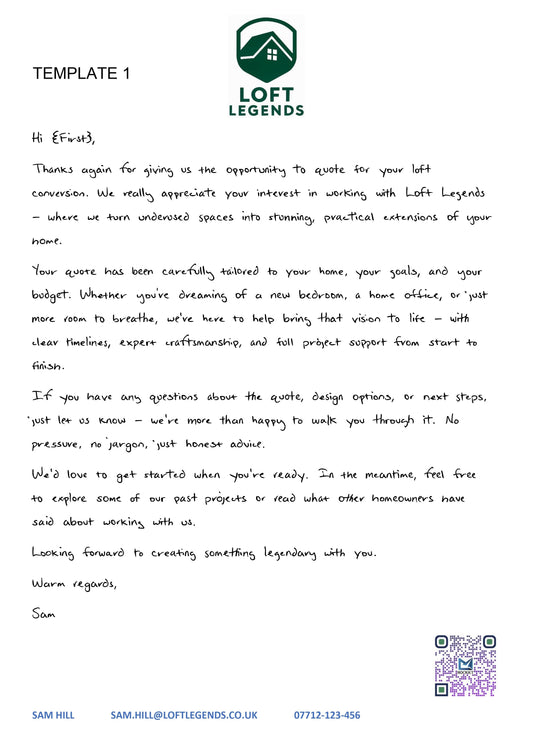 TEMPLATE 1
LOFT
LEGENDS
Hi {First},
Thanks again for giving us the opportunity to quote for your loft
conversion. We really appreciate your interest in working with Loft Legends
– where we turn underused spaces into stunning, practical extensions of your
home.
Your quote has been carefully tailored to your home, your goals, and your
budget. Whether you've dreaming of a new bedroom, a home office, or just
more room to breathe, we've here to help bring that vision to life – with
clear timelines, expert craftsmanship, and full project support from start to
finish.
If you have any questions about the quote, design options, or next steps,
just let us know – we're more than happy to walk you through it. No
pressure, no jargon, just honest advice.
We'd love to get started when you're ready. In the meantime, feel free
to explore some of our past projects or read what other homeowners have
said about working with us.
Looking forward to creating something legendary with you.
Warm regards,
Sam
SAM HILL SAM.HILL@LOFTLEGENDS.CO.UK 07712-123-456